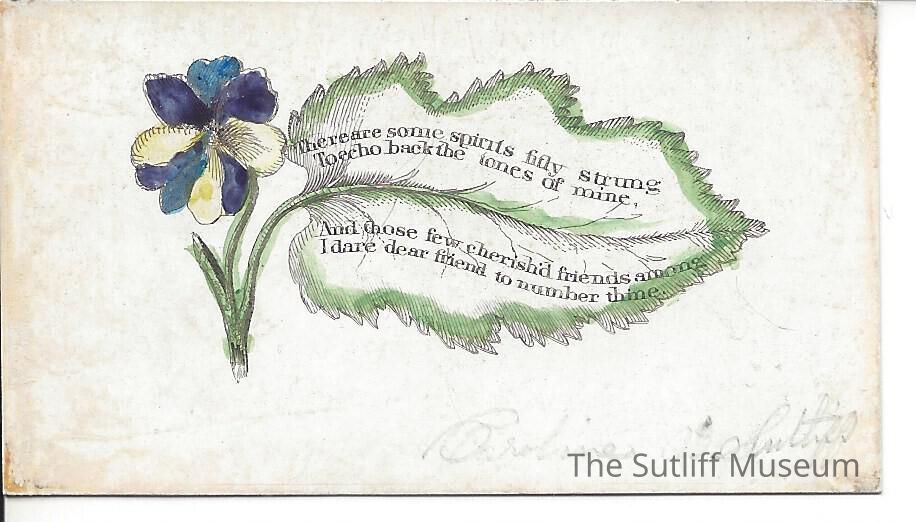 There are some spirits fitly strung
To echo back the tones of mine,
And those few cherish'd friends among
I dare dear friend to number thine.
Caroline
The Sutliff Museum